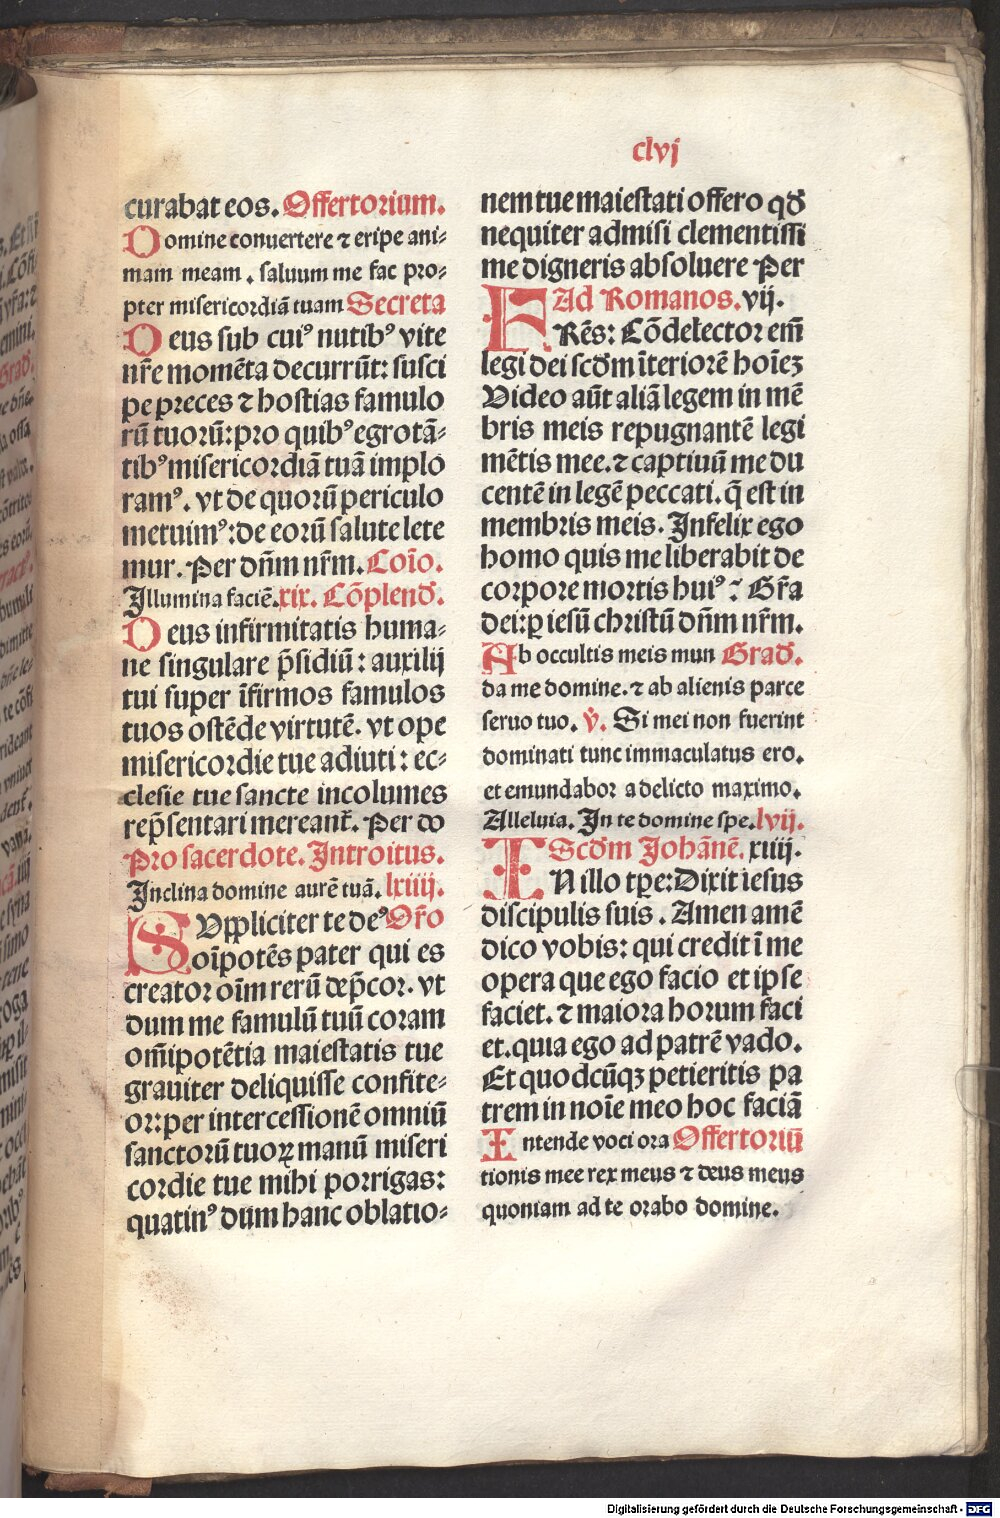 clvj
curabat eos. Offertorium.
Domine conuertere ⁊ eripe ani-
mam meam. saluum me fac pro-
pter misericordiā tuam Secreta
Deus sub cuiꝰ nutibꝰ vite
nr̄e momēta decurrūt: susci
pe preces ⁊ hostias famulo
rū tuorū: pro quibꝰ egrotā-
tibꝰ misericordiā tuā implo
ramꝰ. vt de quorū periculo
metuimꝰ: de eorū salute lete
mur. Per dn̄m nr̄m. Coīo.
Illumina faciē. xix. Cōplend̄.
Deus infirmitatis huma-
ne singulare p̄sidiū: auxilij
tui super īfirmos famulos
tuos ostēde virtutē. vt ope
misericordie tue adiuti: ec-
clesie tue sancte incolumes
rep̄sentari mereant̄. Per do
Pro sacerdote. Introitus.
Inclina domine aurē tuā. lxiiij.
SVppliciter te deꝰ Or̄o
oīpotēs pater qui es
creator oīm rerū dep̄cor. vt
dum me famulū tuū coram
om̄ipotētia maiestatis tue
grauiter deliquisse confite-
or: per intercessionē omniū
sanctorū tuoꝝ manū miseri
cordie tue mihi porrigas:
quatinꝰ dum hanc oblatio-
nem tue maiestati offero qd̄
nequiter admisi clementissi
me digneris absoluere Per
Ad Romanos. vij.
FRēs: Cōdelector em̄
legi dei scd̄m īteriorē hoīeꝫ
Video aūt aliā legem in mē
bris meis repugnantē legi
mētis mee. ⁊ captiuū me du
centē in legē peccati. q̄ est in
membris meis. Infelix ego
homo quis me liberabit de
corpore mortis huiꝰ: Gr̄a
dei: ꝑ iesū christū dn̄m nr̄m.
Ab occultis meis mun Grad̄.
da me domine. ⁊ ab alienis parce
seruo tuo. v̄. Si mei non fuerint
dominati tunc immaculatus ero.
et emundabor a delicto maximo.
Alleluia. In te domine spe. lvij.
Scd̄m Johānē. xiiij.
IN illo tp̄e: Dixit iesus
discipulis suis. Amen amē
dico vobis: qui credit ī me
opera que ego facio et ipse
faciet. ⁊ maiora horum faci
et. quia ego ad patrē vado.
Et quodcūqꝫ petieritis pa
trem in noīe meo hoc faciā
Intende voci ora Offertoriū
tionis mee rex meus ⁊ deus meus
quoniam ad te orabo domine.
Digitalisierung gefördert durch die Deutsche Forschungsgemeinschaft - DFG